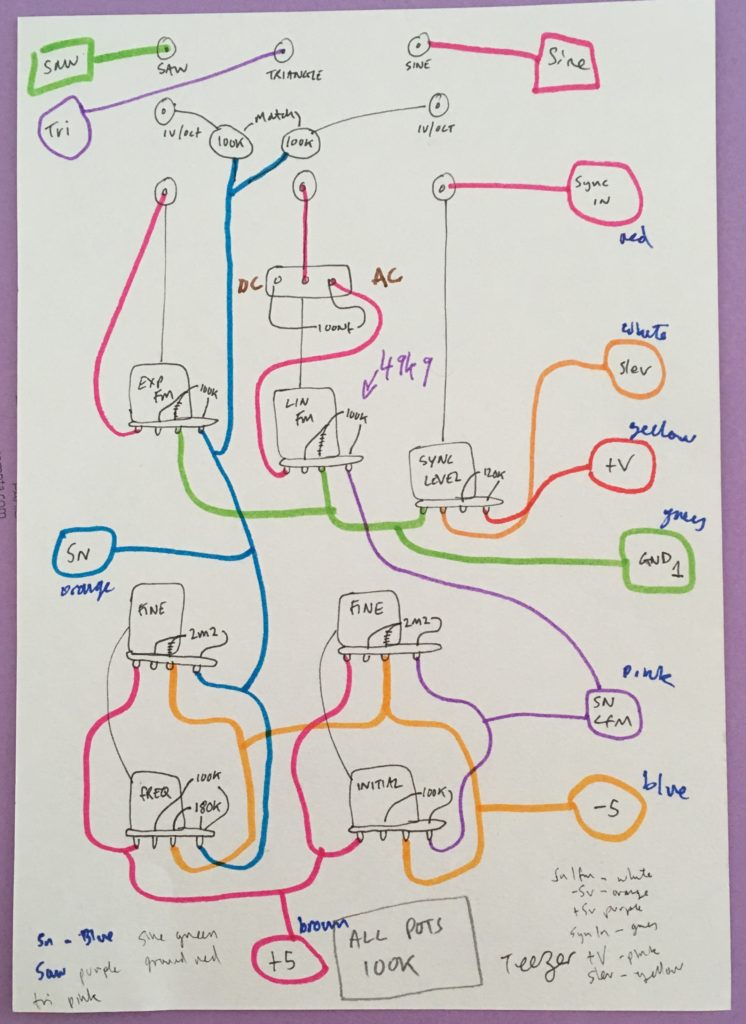 SAW
SAW
TRIANGLE
SINE
Sine
Tri
1V/OCT
Match
1V/OCT
100K
100K
Sync
IN
red
DC
AC
100nf
49k9
white
Slev
EXP
FM
100K
LIN
FM
100K
SYNC
LEVEL
120K
yellow
+V
grey
GND
1
SN
orange
FINE
2M2
FINE
2M2
pink
SN
LFM
FREQ
100K
180K
INITIAL
100K
blue
-5
brown
+5
ALL POTS
100K
Sn - Blue
Saw purple
tri pink
sine green
ground red
Teezer
Sn lfm - white
-5v - orange
+5v purple
Sync In - grey
+V - pink
Slev - yellow